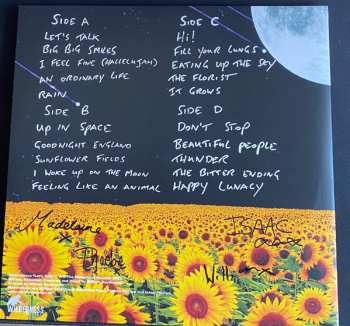 SIDE A
LET'S TALK
BIG BIG SMILES
I FEEL FINE (HALLELUJAH)
AN ORDINARY LIFE
RAIN
SIDE B
UP IN SPACE
GOODNIGHT ENGLAND
SUNFLOWER FIELDS
I WOKE UP ON THE MOON
FEELING LIKE AN ANIMAL
SIDE C
Hi!
FILL YOUR LUNGS
EATING UP THE SKY
THE FLORIST
IT GROWS
SIDE D
DON'T STOP
BEAUTIFUL PEOPLE
THUNDER
THE BITTER ENDING
HAPPY LUNACY
Madelaine
Phoebe
ISAAC
WILDERNESS